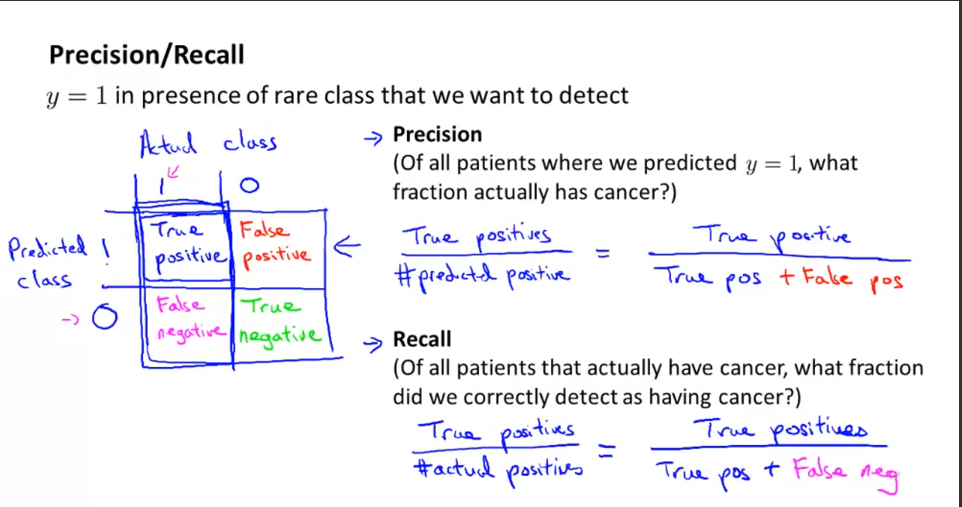 Precision/Recall
y = 1 in presence of rare class that we want to detect
Actual class
1 0
Predicted class
1
True positive
False positive
0
False negative
True negative
→ Precision
(Of all patients where we predicted y = 1, what
fraction actually has cancer?)
True positives
#predicted positive
=
True positive
True pos + False pos
→ Recall
(Of all patients that actually have cancer, what fraction
did we correctly detect as having cancer?)
True positives
#actual positives
=
True positives
True pos + False neg